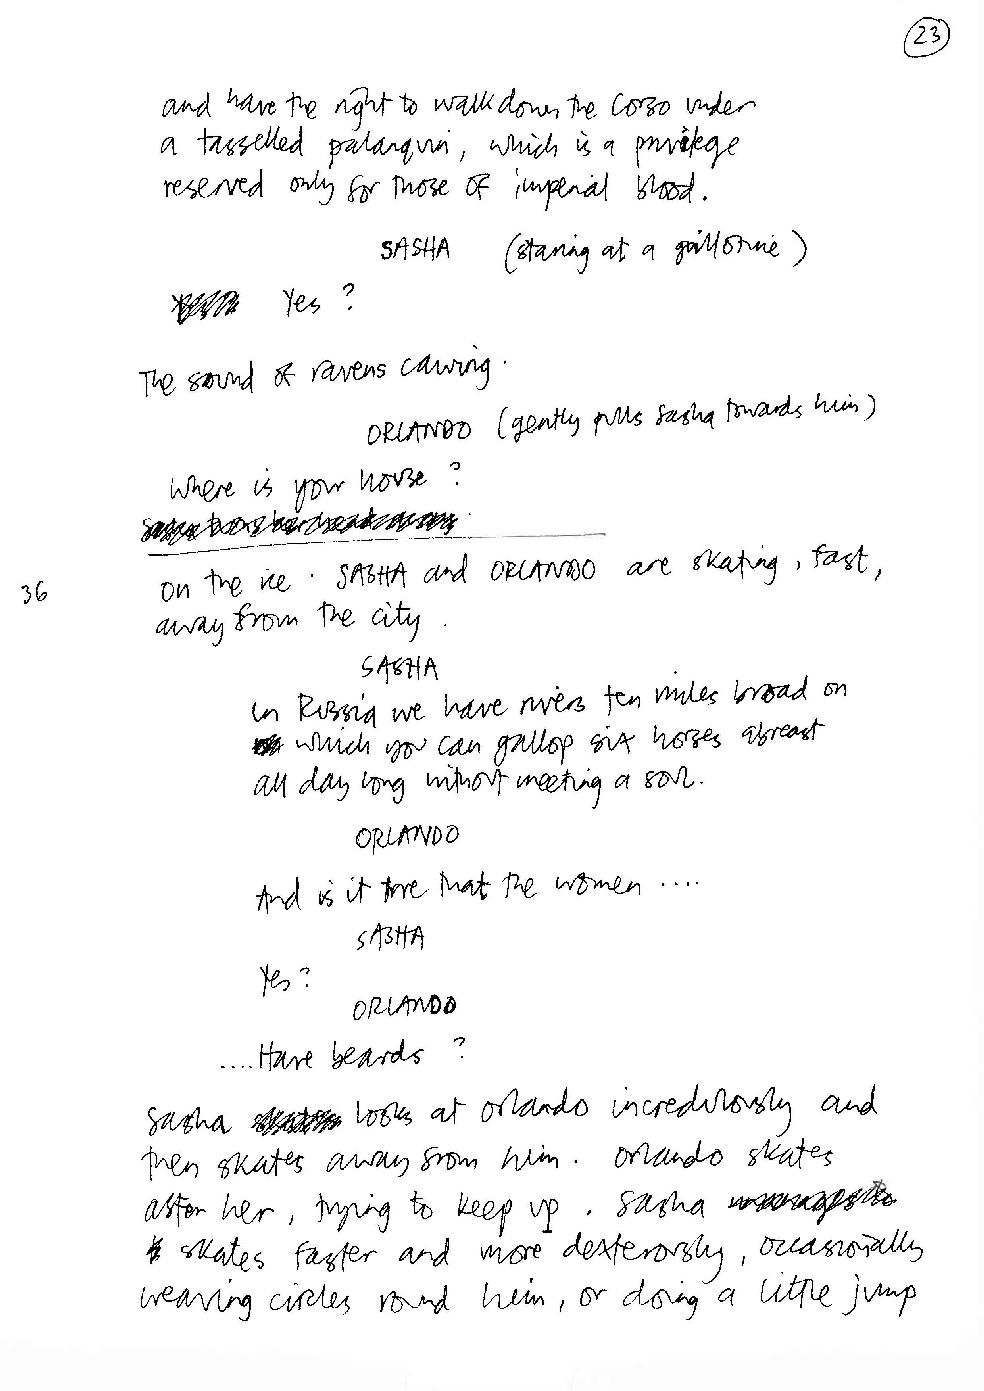 23
and have the right to walk down the Corso under
a tasselled palanquin, which is a privilege
reserved only for those of imperial blood.
SASHA (staring at a guillotine)
Yes?
The sound of ravens cawing.
ORLANDO (gently pulls Sasha towards him)
Where is your house?
36
On the ice. SASHA and ORLANDO are skating, fast,
away from the city.
SASHA
In Russia we have rivers ten miles broad on
which you can gallop six horses abreast
all day long without meeting a soul.
ORLANDO
And is it true that the women ....
SASHA
Yes?
ORLANDO
....Have beards?
Sasha looks at Orlando incredulously and
then skates away from him. Orlando skates
after her, trying to keep up. Sasha
skates faster and more dexterously, occasionally
weaving circles round him, or doing a little jump